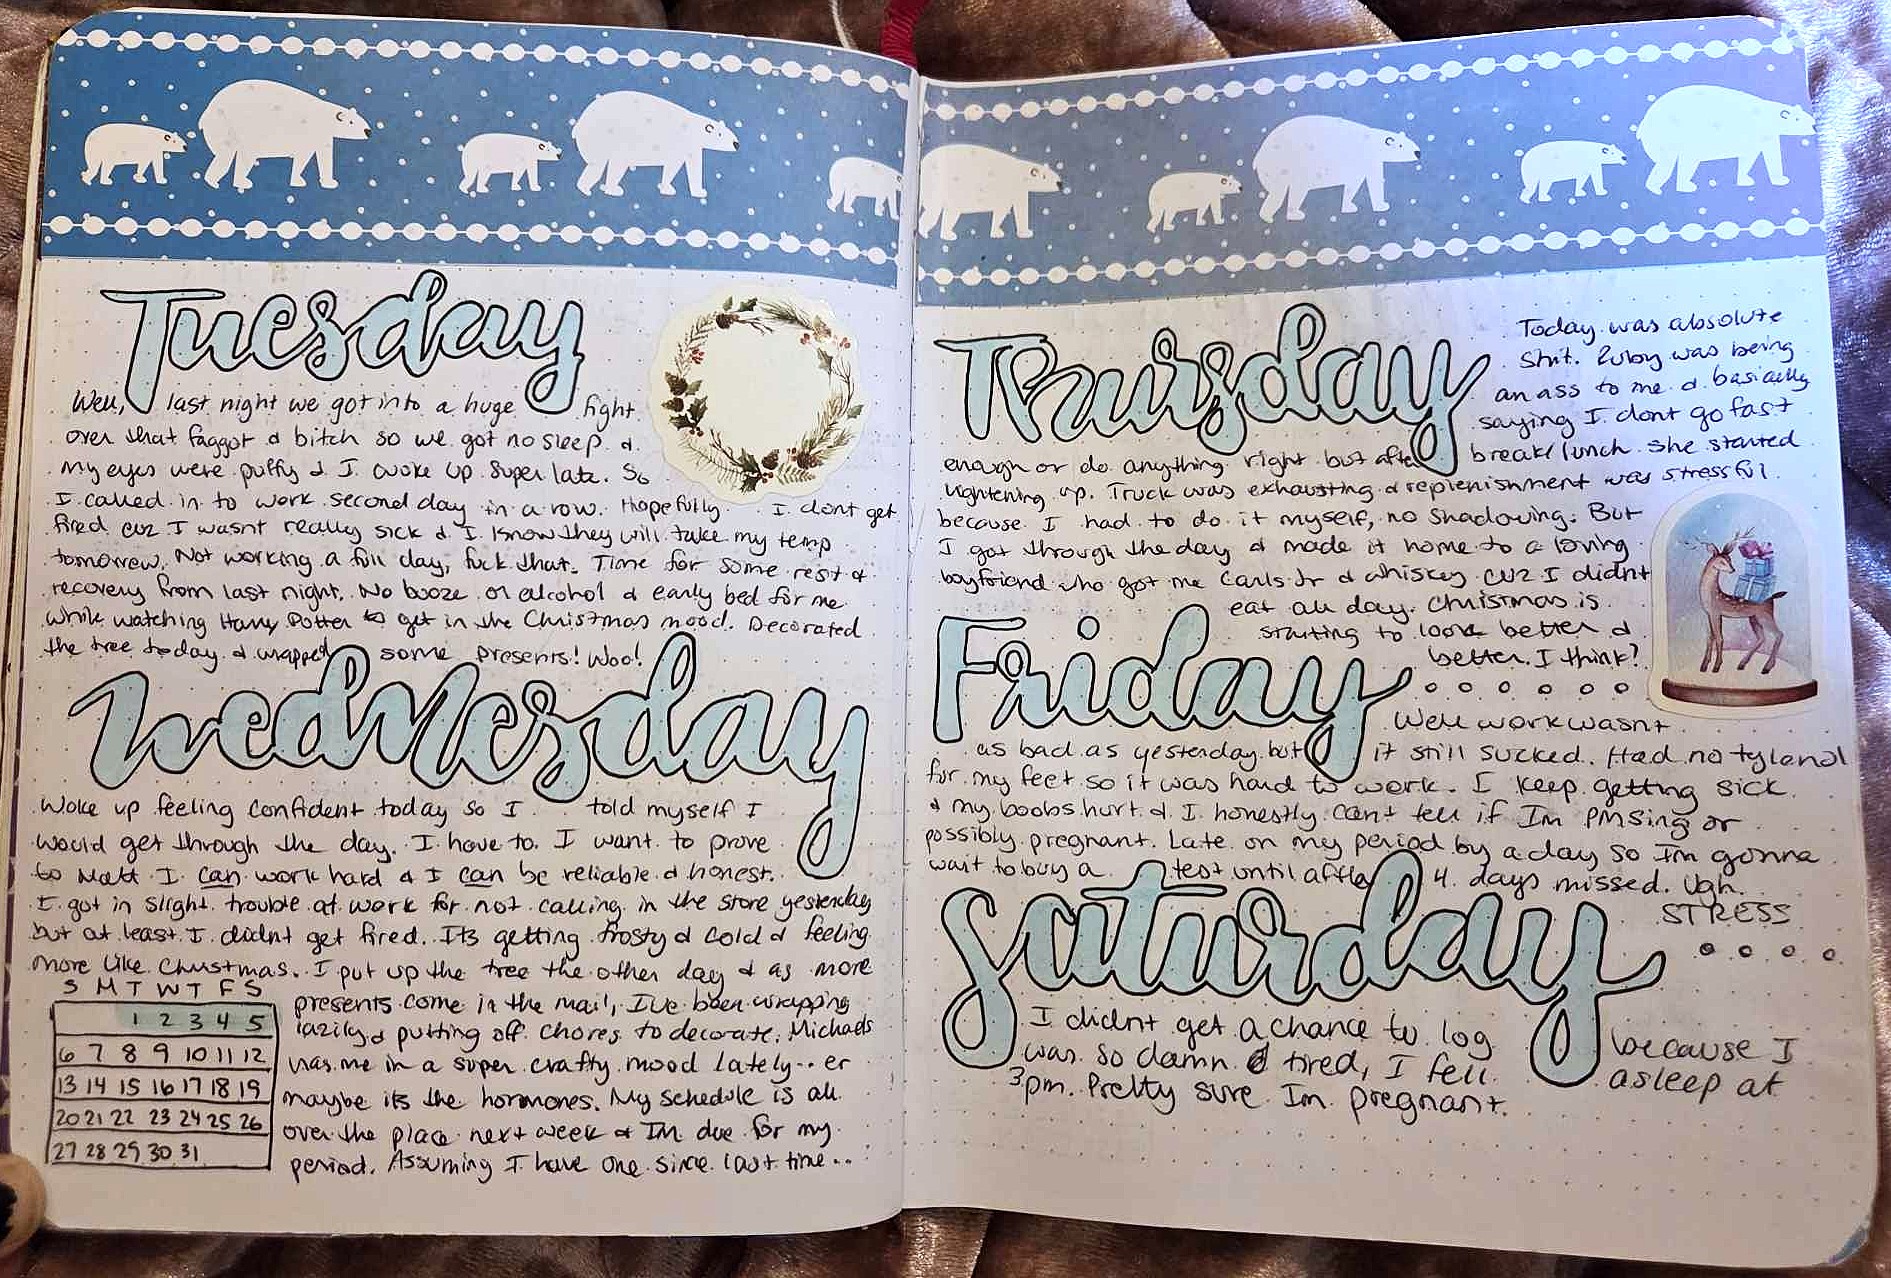 Tuesday
Well, last night we got into a huge fight
over that faggot & bitch so we got no sleep &
my eyes were puffy & I woke up super late. So
I called in to work second day in a row. Hopefully I dont get
fired cuz I wasnt really sick & I know they will take my temp
tomorrow. Not working a full day, fuck that. Time for some rest &
recovery from last night. No booze or alcohol & early bed for me
while watching Harry Potter to get in the Christmas mood. Decorated
the tree today & wrapped some presents! Woo!
Wednesday
Woke up feeling confident today so I told myself I
would get through the day. I have to. I want to prove
to Matt I can work hard & I can be reliable & honest.
I got in slight trouble at work for not calling in the store yesterday
but at least I didnt get fired. Its getting frosty & cold & feeling
more like Christmas. I put up the tree the other day & as more
presents come in the mail, I've been wrapping
lazily & putting off chores to decorate. Michaels
has me in a super crafty mood lately.. er
maybe its the hormones. My schedule is all
over the place next week & Im due for my
period. Assuming I have one since last time..
S M T W T F S
1 2 3 4 5
6 7 8 9 10 11 12
13 14 15 16 17 18 19
20 21 22 23 24 25 26
27 28 29 30 31
Thursday
Today was absolute
shit. Ruby was being
an ass to me & basically
saying I dont go fast
enough or do anything right but after break/lunch she started
lightening up. Truck was exhausting & replenishment was stressful
because I had to do it myself, no shadowing. But
I got through the day & made it home to a loving
boyfriend who got me Carls Jr & whiskey cuz I didnt
eat all day. Christmas is
starting to look better &
better. I think?
Friday
Well work wasnt
as bad as yesterday but it still sucked. Had no tylenol
for my feet so it was hard to work. I keep getting sick
& my boobs hurt & I honestly cant tell if Im PMSing or
possibly pregnant. Late on my period by a day so Im gonna
wait to buy a test until after 4 days missed. Ugh.
STRESS
Saturday
I didnt get a chance to log because I
was so damn tired, I fell asleep at
3pm. Pretty sure Im pregnant.